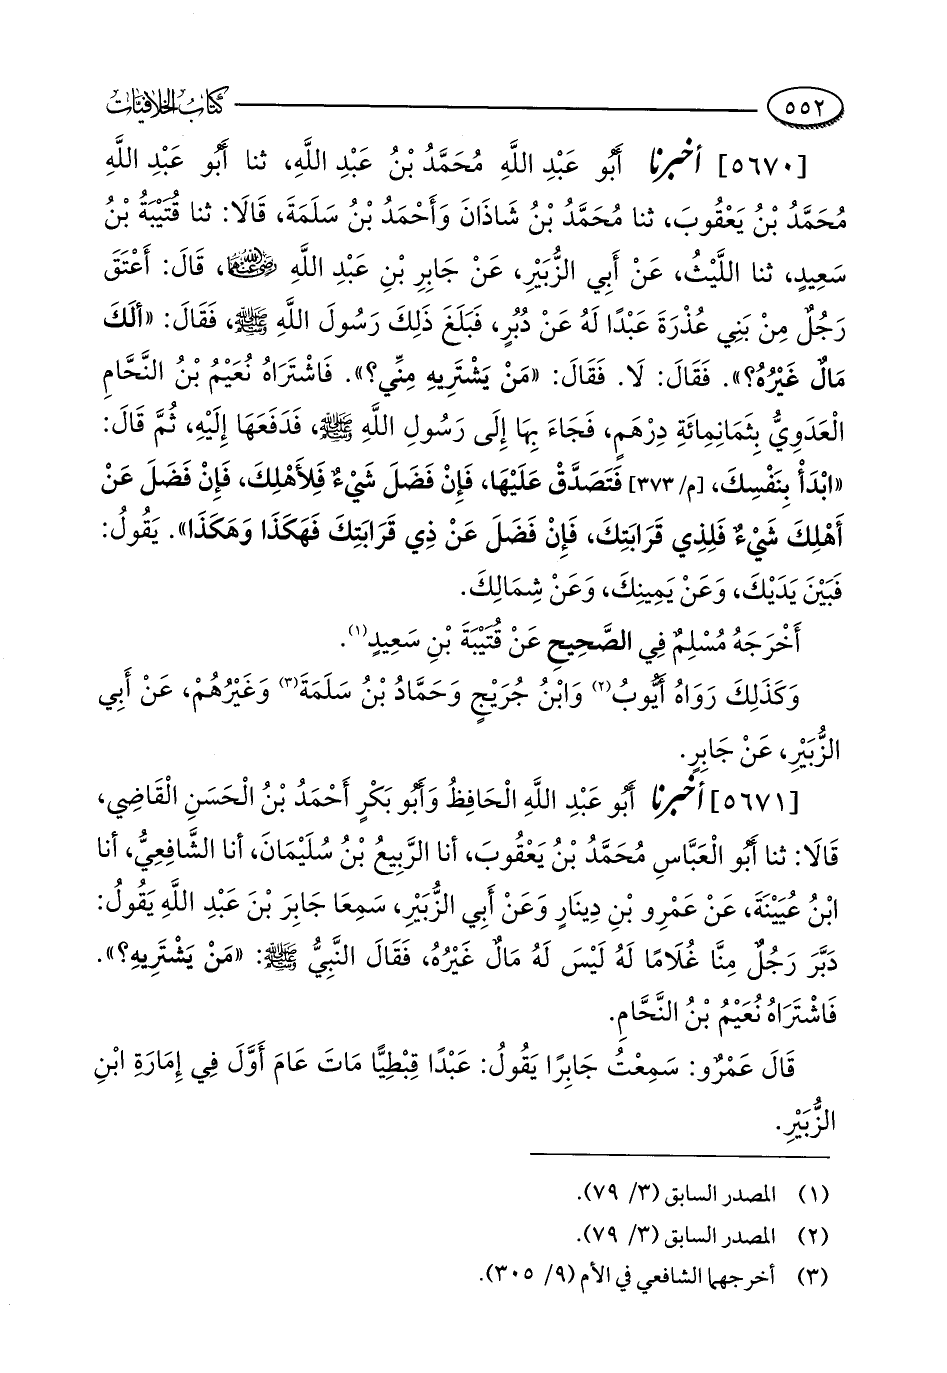 ٥٥٢ كتاب الخلافيات
[٥٦٧٠] أخبرنا أَبُو عَبْدِ اللَّهِ مُحَمَّدُ بْنُ عَبْدِ اللَّهِ، ثنا أَبُو عَبْدِ اللَّهِ
مُحَمَّدُ بْنُ يَعْقُوبَ، ثنا مُحَمَّدُ بْنُ شَاذَانَ وَأَحْمَدُ بْنُ سَلَمَةَ، قَالَا: ثنا قُتَيْبَةُ بْنُ
سَعِيدٍ، ثنا اللَّيْثُ، عَنْ أَبِي الزُّبَيْرِ، عَنْ جَابِرِ بْنِ عَبْدِ اللَّهِ رضي الله عنهما، قَالَ: أَعْتَقَ
رَجُلٌ مِنْ بَنِي عُذْرَةَ عَبْدًا لَهُ عَنْ دُبُرٍ، فَبَلَغَ ذَلِكَ رَسُولَ اللَّهِ ﷺ، فَقَالَ: «أَلَكَ
مَالٌ غَيْرُهُ؟». فَقَالَ: لَا. فَقَالَ: «مَنْ يَشْتَرِيهِ مِنِّي؟». فَاشْتَرَاهُ نُعَيْمُ بْنُ النَّحَّامِ
الْعَدَوِيُّ بِثَمَانِمِائَةِ دِرْهَمٍ، فَجَاءَ بِهَا إِلَى رَسُولِ اللَّهِ ﷺ، فَدَفَعَهَا إِلَيْهِ، ثُمَّ قَالَ:
«ابْدَأْ بِنَفْسِكَ، [م/ ٣٧٣] فَتَصَدَّقْ عَلَيْهَا، فَإِنْ فَضَلَ شَيْءٌ فَلِأَهْلِكَ، فَإِنْ فَضَلَ عَنْ
أَهْلِكَ شَيْءٌ فَلِذِي قَرَابَتِكَ، فَإِنْ فَضَلَ عَنْ ذِي قَرَابَتِكَ فَهَكَذَا وَهَكَذَا». يَقُولُ:
فَبَيْنَ يَدَيْكَ، وَعَنْ يَمِينِكَ، وَعَنْ شِمَالِكَ.
أَخْرَجَهُ مُسْلِمٌ فِي الصَّحِيحِ عَنْ قُتَيْبَةَ بْنِ سَعِيدٍ(١).
وَكَذَلِكَ رَوَاهُ أَيُّوبُ(٢) وَابْنُ جُرَيْجٍ وَحَمَّادُ بْنُ سَلَمَةَ(٣) وَغَيْرُهُمْ، عَنْ أَبِي
الزُّبَيْرِ، عَنْ جَابِرٍ.
[٥٦٧١] أخبرنا أَبُو عَبْدِ اللَّهِ الْحَافِظُ وَأَبُو بَكْرٍ أَحْمَدُ بْنُ الْحَسَنِ الْقَاضِي،
قَالَا: ثنا أَبُو الْعَبَّاسِ مُحَمَّدُ بْنُ يَعْقُوبَ، أنا الرَّبِيعُ بْنُ سُلَيْمَانَ، أنا الشَّافِعِيُّ، أنا
ابْنُ عُيَيْنَةَ، عَنْ عَمْرِو بْنِ دِينَارٍ وَعَنْ أَبِي الزُّبَيْرِ، سَمِعَا جَابِرَ بْنَ عَبْدِ اللَّهِ يَقُولُ:
دَبَّرَ رَجُلٌ مِنَّا غُلَامًا لَهُ لَيْسَ لَهُ مَالٌ غَيْرُهُ، فَقَالَ النَّبِيُّ ﷺ: «مَنْ يَشْتَرِيهِ؟».
فَاشْتَرَاهُ نُعَيْمُ بْنُ النَّحَّامِ.
قَالَ عَمْرٌو: سَمِعْتُ جَابِرًا يَقُولُ: عَبْدًا قِبْطِيًّا مَاتَ عَامَ أَوَّلَ فِي إِمَارَةِ ابْنِ
الزُّبَيْرِ.
(١) المصدر السابق (٣/ ٧٩).
(٢) المصدر السابق (٣/ ٧٩).
(٣) أخرجهما الشافعي في الأم (٩/ ٣٠٥).